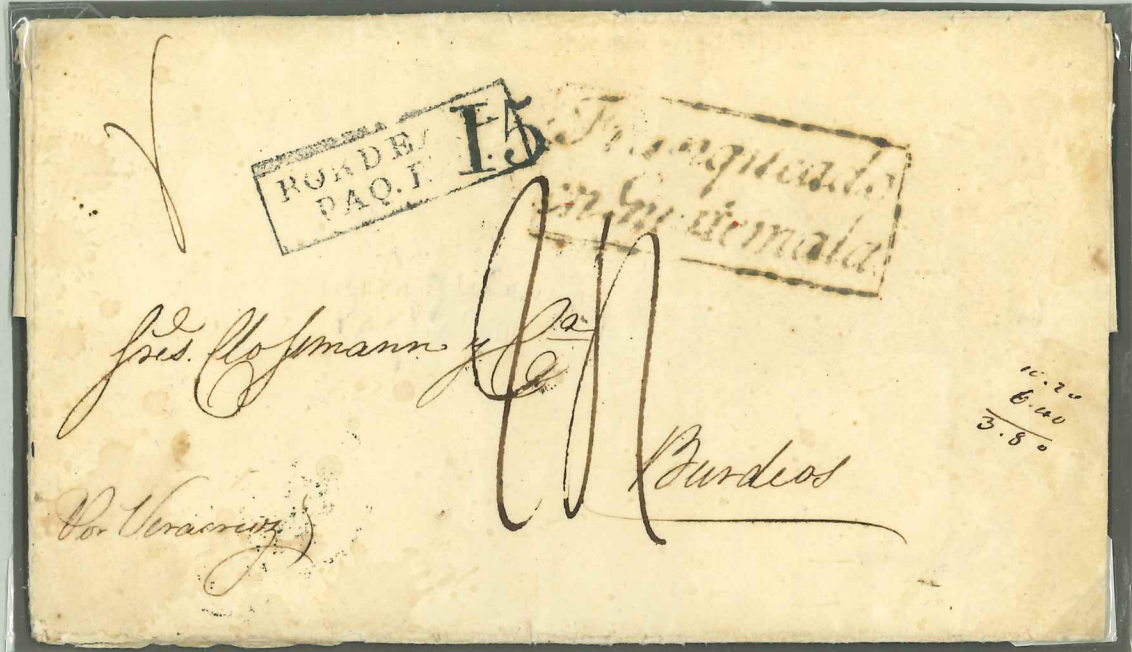 BORDEAUX
PAQ. F.
15
Franqueado
en Guatemala.
Sres. Clossmann y Ca
Burdeos
Por Veracruz
10.20
6.40
3.80